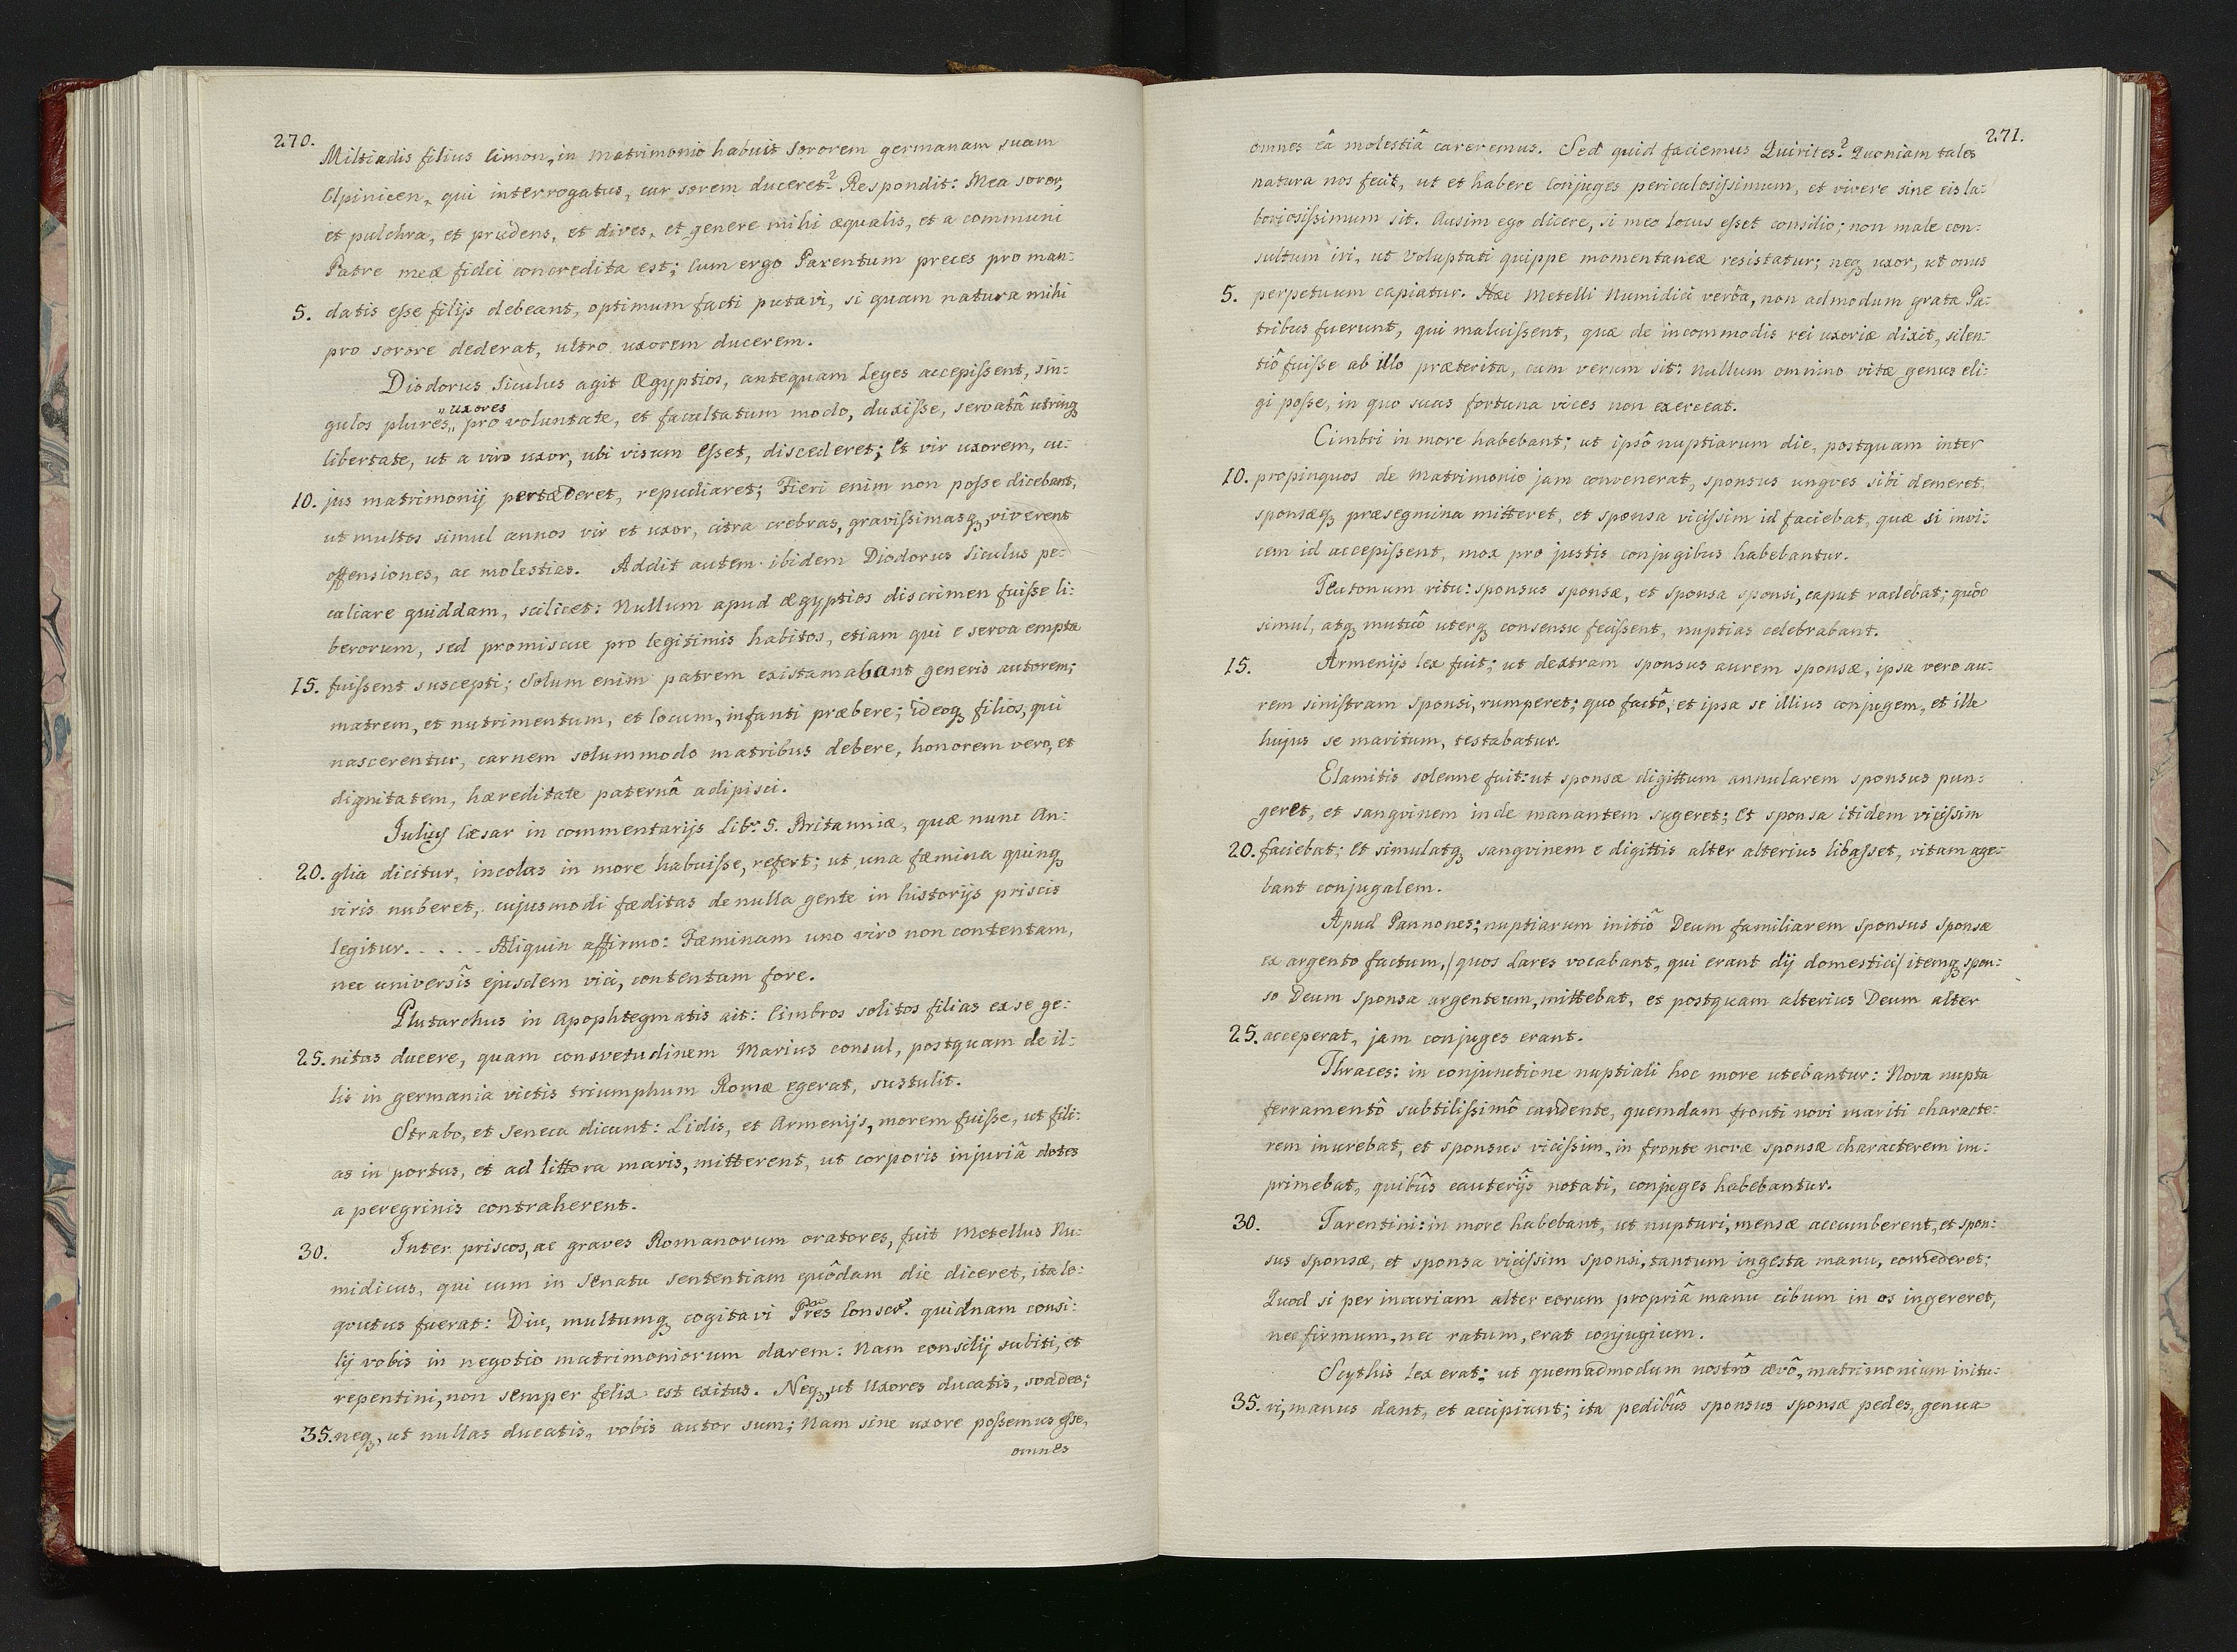 270.
Miltiadis filius Cimon, in matrimonio habuit Sororem germanam suam
Elpinicen, qui interrogatus, cur sorem duceret? Respondit: Mea soror,
et pulchra, et prudens, et dives, et genere mihi æqualis, et a communi
Patre meæ fidei concredita est; Cum ergo Parentum preces pro man:
5. datis eſse filijs debeant, optimum facti putavi, si quam natura mihi
pro sorore dederat, ultro uxorem ducerem.
Diodorus Siculus agit Ægyptios, antequam Leges accepiſsent, sin:
gulos plures „uxores„ pro voluntate, et facultatum modo, duxiſse, servatâ utrinq
libertate, ut a viro uxor, ubi visum eſset, discederet; Et vir uxorem, cu:
10. jus matrimonij pertæderet, repudiaret; Fieri enim non poſse dicebant,
ut multos simul annos vir et uxor, citra crebras, graviſsimasq, viverent
offensiones, ac molestias. Addit autem ibidem Diodorus Siculus pe:
culiare quiddam, scilicet: Nullum apud Ægyptios discrimen fuiſse li:
berorum, sed promiscue pro legitimis habitos, etiam qui e serva empta
15. fuiſsent suscepti; Solum enim patrem existamabant generis autorem;
matrem, et nutrimentum, et locum, infanti præbere; ideoq filios, qui
nascerentur, carnem solummodo matribus debere, honorem vero, et
dignitatem, hæreditate paternâ adipisci.
Julius Cæsar in commentarijs Libr. 5. Britanniæ, quæ nunc An:
20. glia dicitur, incolas in more habuiſse, refert; ut una fæmina quinq
viris nuberet, cujusmodi fæditas de nulla gente in historijs priscis
legitur. . . . . Aliquin affirmo: Fæminam uno viro non contentam,
nec universîs ejusdem vici, contentam fore.
Plutarchus in Apophtegmatis ait: Cimbros solitos filias ex se ge:
25. nitas ducere, quam consvetudinem Marius consul, postquam de il:
lis in germania victis triumphum Romæ egerat, sustulit.
Strabo, et Seneca dicunt: Lidis, et Armenijs, morem fuiſse, ut fili:
as in portus, et ad littora maris, mitterent, ut corporis injuriâ dotes
a peregrinis contraherent.
30. Inter priscos, ac graves Romanorum oratores, fuit Metellus Nu:
midicus, qui cum in Senatu sententiam quôdam die diceret, ita lo:
qvutus fuerat: Diu, multumq cogitavi Pres Conscr. quidnam consi:
lij vobis in negotio matrimoniorum darem: Nam consilij subiti, et
repentini, non semper felix est exitus. Neq, ut Uxores ducatis, svadeo;
35. neq, ut nullas ducatis, vobis autor sum; Nam sine uxore poſsemus eſse,
omnes
271.
omnes eâ molestiâ careremus. Sed quid faciemus Quirites? Quoniam tales
natura nos fecit, ut et habere Conjuges periculosiſsimum, et vivere sine eis la:
boriosiſsimum sit. Ausim ego dicere, si meo locus eſset consilio; non male con:
sultum iri, ut voluptati quippe momentaneæ resistatur; neq uxor, ut onus
5. perpetuum capiatur. Hæc Metelli Numidici verba, non admodum grata Pa:
tribus fuerunt, qui maluiſsent, quæ de incommodis rei uxoriæ dixit, silen:
tiô fuiſse ab illo præterita, cum verum sit: Nullum omnino vitæ genus eli:
gi poſse, in quo suas fortuna vices non exerceat.
Cimbri in more habebant; ut ipsô nuptiarum die, postquam inter
10. propinquos de Matrimonio jam convenerat, sponsus ungves sibi demeret,
sponsæq præsegmina mitteret, et sponsa viciſsim id faciebat, quæ si invi:
cem id accepiſsent, mox pro justis conjugibus habebantur.
Teutonum ritu: sponsus sponsæ, et sponsa sponsi, caput radebat; quôd
simul, atq mutuô uterq consensu feciſsent, nuptias celebrabant.
15. Armenijs lex fuit; ut dextram sponsus aurem sponsæ, ipsa vero au:
rem siniſtram sponsi, rumperet; quo factô, et ipsa se illius conjugem, et ille
hujus se maritum, testabatur.
Elamitis solenne fuit: ut sponsæ digittum annularem sponsus pun:
geret, et sangvinem inde manantem sugeret; Et sponsa itidem viciſsim
20. faciebat; Et simulatq sangvinem e digittis alter alterius libaſset, vitam age:
bant conjugalem.
Apud Pannones; nuptiarum initiô Deum familiarem sponsus sponsæ
ex argento factum, /quos Lares vocabant, qui erant dij domestici/ itemq spon:
so Deum sponsa argenteum, mittebat, et postquam alterius Deum alter
25. acceperat, jam conjuges erant.
Thraces: in conjunctione nuptiali hoc more utebantur: Nova nupta
ferramentô subtiliſsimô candente, quemdam fronti novi mariti characte:
rem inurebat, et sponsus viciſsim, in fronte novæ sponsæ characterem im:
primebat, quibûs cauterijs notati, conjuges habebantur.
30. Tarentini: in more habebant, ut nupturi, mensæ accumberent, et spon:
sus sponsæ, et sponsa viciſsim sponsi, tantum ingesta manu, comederet;
Quod si per incuriam alter eorum propriâ manu cibum in os ingereret,
nec firmum, nec ratum, erat conjugium.
Scythis lex erat; ut quemadmodum nostrô ævô, matrimonium initu:
35. ri, manus dant, et accipiunt; ita pedibûs sponsus sponsæ pedes, genua